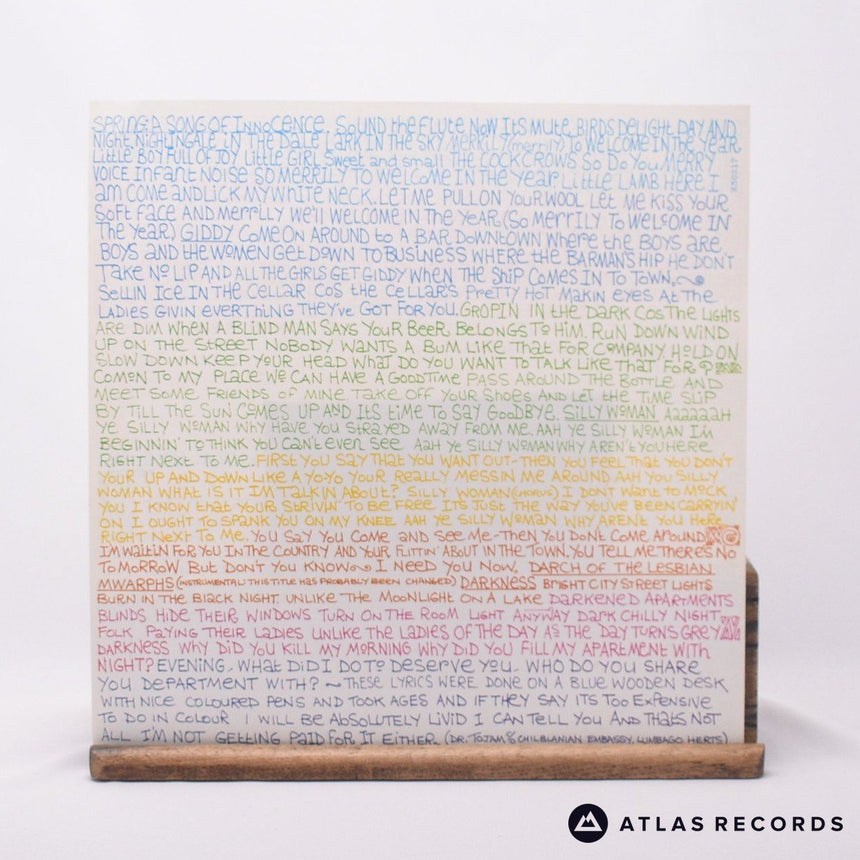 SPRING A SONG OF INNOCENCE. SOUND the FLUTE NOW ITS MUTE BIRDS DELIGHT DAY AND
NIGHT. NIGHTINGALE IN THE DALE LARK IN THE SKY MERRILY (merrily) TO WELCOME IN THE YEAR
LITTLE BOY FULL OF JOY LITTLE GIRL SWEET and SMALL THE COCK CROWS SO DO YOU MERRY
VOICE INFANT NOISE SO MERRILY TO WELCOME IN THE YEAR. LITTLE LAMB HERE I
am COME AND LICK MY WHITE NECK. LET ME PULL ON YOUR WOOL LET ME KISS YOUR
SOFT FACE AND MERRILY WE'll WELCOME IN THE YEAR (SO MERRILY TO WELCOME IN
THE YEAR) GIDDY COME ON AROUND to A BAR DOWNTOWN WHERE the BOYS ARE
BOYS AND tHE WOMEN GET DOWN TO BUSINESS WHERE THE BARMAN'S HIP HE DON'T
TAKE NO LIP AND ALL THE GIRLS GET GIDDY WHEN THE SHIP COMES IN TO TOWN,
SELLIN ICE IN THE CELLAR COS tHE CELLAR'S PRETTY HOT MAKIN EYES AT THE
LADIES GIVIN EVERTHING THEY'VE GOT FOR YOU. GROPIN IN tHE DARK COS THE LIGHTS
ARE DIM WHEN A BLIND MAN SAYS YOUR BEER BELONGS TO HIM. RUN DOWN WIND
UP ON THE STREET NOBODY WANTS A BUM LIKE THAT FOR COMPANY HOLD ON
SLOW DOWN KEEP YOUR HEAD WHAT DO YOU WANT TO TALK LIKE THAT FOR?
COMON TO MY PLACE WE CAN HAVE A GOODTIME PASS AROUND THE BOTTLE AND
MEET SOME FRIENDS OF MINE TAKE OFF YOUR SHOES AND LET THE TIME SLIP
BY TILL THE SUN COMES UP AND ITS tIME TO SAY GOODBYE. SILLY WOMAN AAAAAAH
YE SILLY WOMAN WHY HAVE YOU STRAYED AWAY FROM ME. AAH YE SILLY WOMAN I'M
BEGINNIN' TO THINK YOU CAN'T EVEN SEE AAH YE SILLY WOMAN WHY AREN'T YOU HERE
RIGHT NEXT TO ME. FIRST YOU SAY THAT YOU WANT OUT-THEN YOU FEEL THAT YOU DON'T
YOUR UP AND DOWN LIKE A YOYO YOUR REALLY MESSIN ME AROUND AAH YOU SILLY
WOMAN WHAT IS IT I'M TALKIN ABOUT? SILLY WOMAN (CHORUS) I DONT WANT to MOCK
YOU I KNOW tHAT YOUR STRIVIN' TO BE FREE ITS JUST THE WAY YOU'VE BEEN CARRYIN'
ON I OUGHT TO SPANK YOU ON MY KNEE AAH YE SILLY WOMAN WHY AREN'T YOU HERE
RIGHT NEXT TO ME. YOU SAY YOU COME AND SEE ME-THEN YOU DON'T COME AROUND
I'M WAITIN FOR YOU IN THE COUNTRY AND YOUR FLITTIN' ABOUT IN THE TOWN. YOU TELL ME THERE'S NO
TOMORROW BUT DON'T YOU KNOW I NEED YOU NOW. DARCH OF THE LESBIAN
MWARPHS (INSTRUMENTAL THIS TITLE HAS PROBABLY BEEN CHANGED) DARKNESS BRIGHT CITY STREET LIGHTS
BURN IN THE BLACK NIGHT UNLIKE THE MOONLIGHT ON A LAKE DARKENED APARTMENTS
BLINDS HIDE THEIR WINDOWS TURN ON THE ROOM LIGHT ANYWAY DARK CHILLY NIGHT
FOLK PAYING THEIR LADIES UNLIKE THE LADIES OF THE DAY AS THE DAY TURNS GREY
DARKNESS WHY DID YOU KILL MY MORNING WHY DID YOU FILL MY APARTMENT WITH
NIGHT? EVENING. WHAT DID I DO TO DESERVE YOU. WHO DO YOU SHARE
YOU DEPARTMENT WITH? ~ THESE LYRICS WERE DONE ON A BLUE WOODEN DESK
WITH NICE COLOURED PENS AND TOOK AGES AND IF THEY SAY ITS TOO EXPENSIVE
TO DO IN COLOUR I WILL BE ABSOLUTELY LIVID I CAN TELL YOU AND THATS NOT
ALL I'M NOT GETTING PAID FOR IT EITHER. (DR. TOJAM % CHILBLANIAN EMBASSY, LUMBAGO. HERTS)
K50217
ATLAS RECORDS